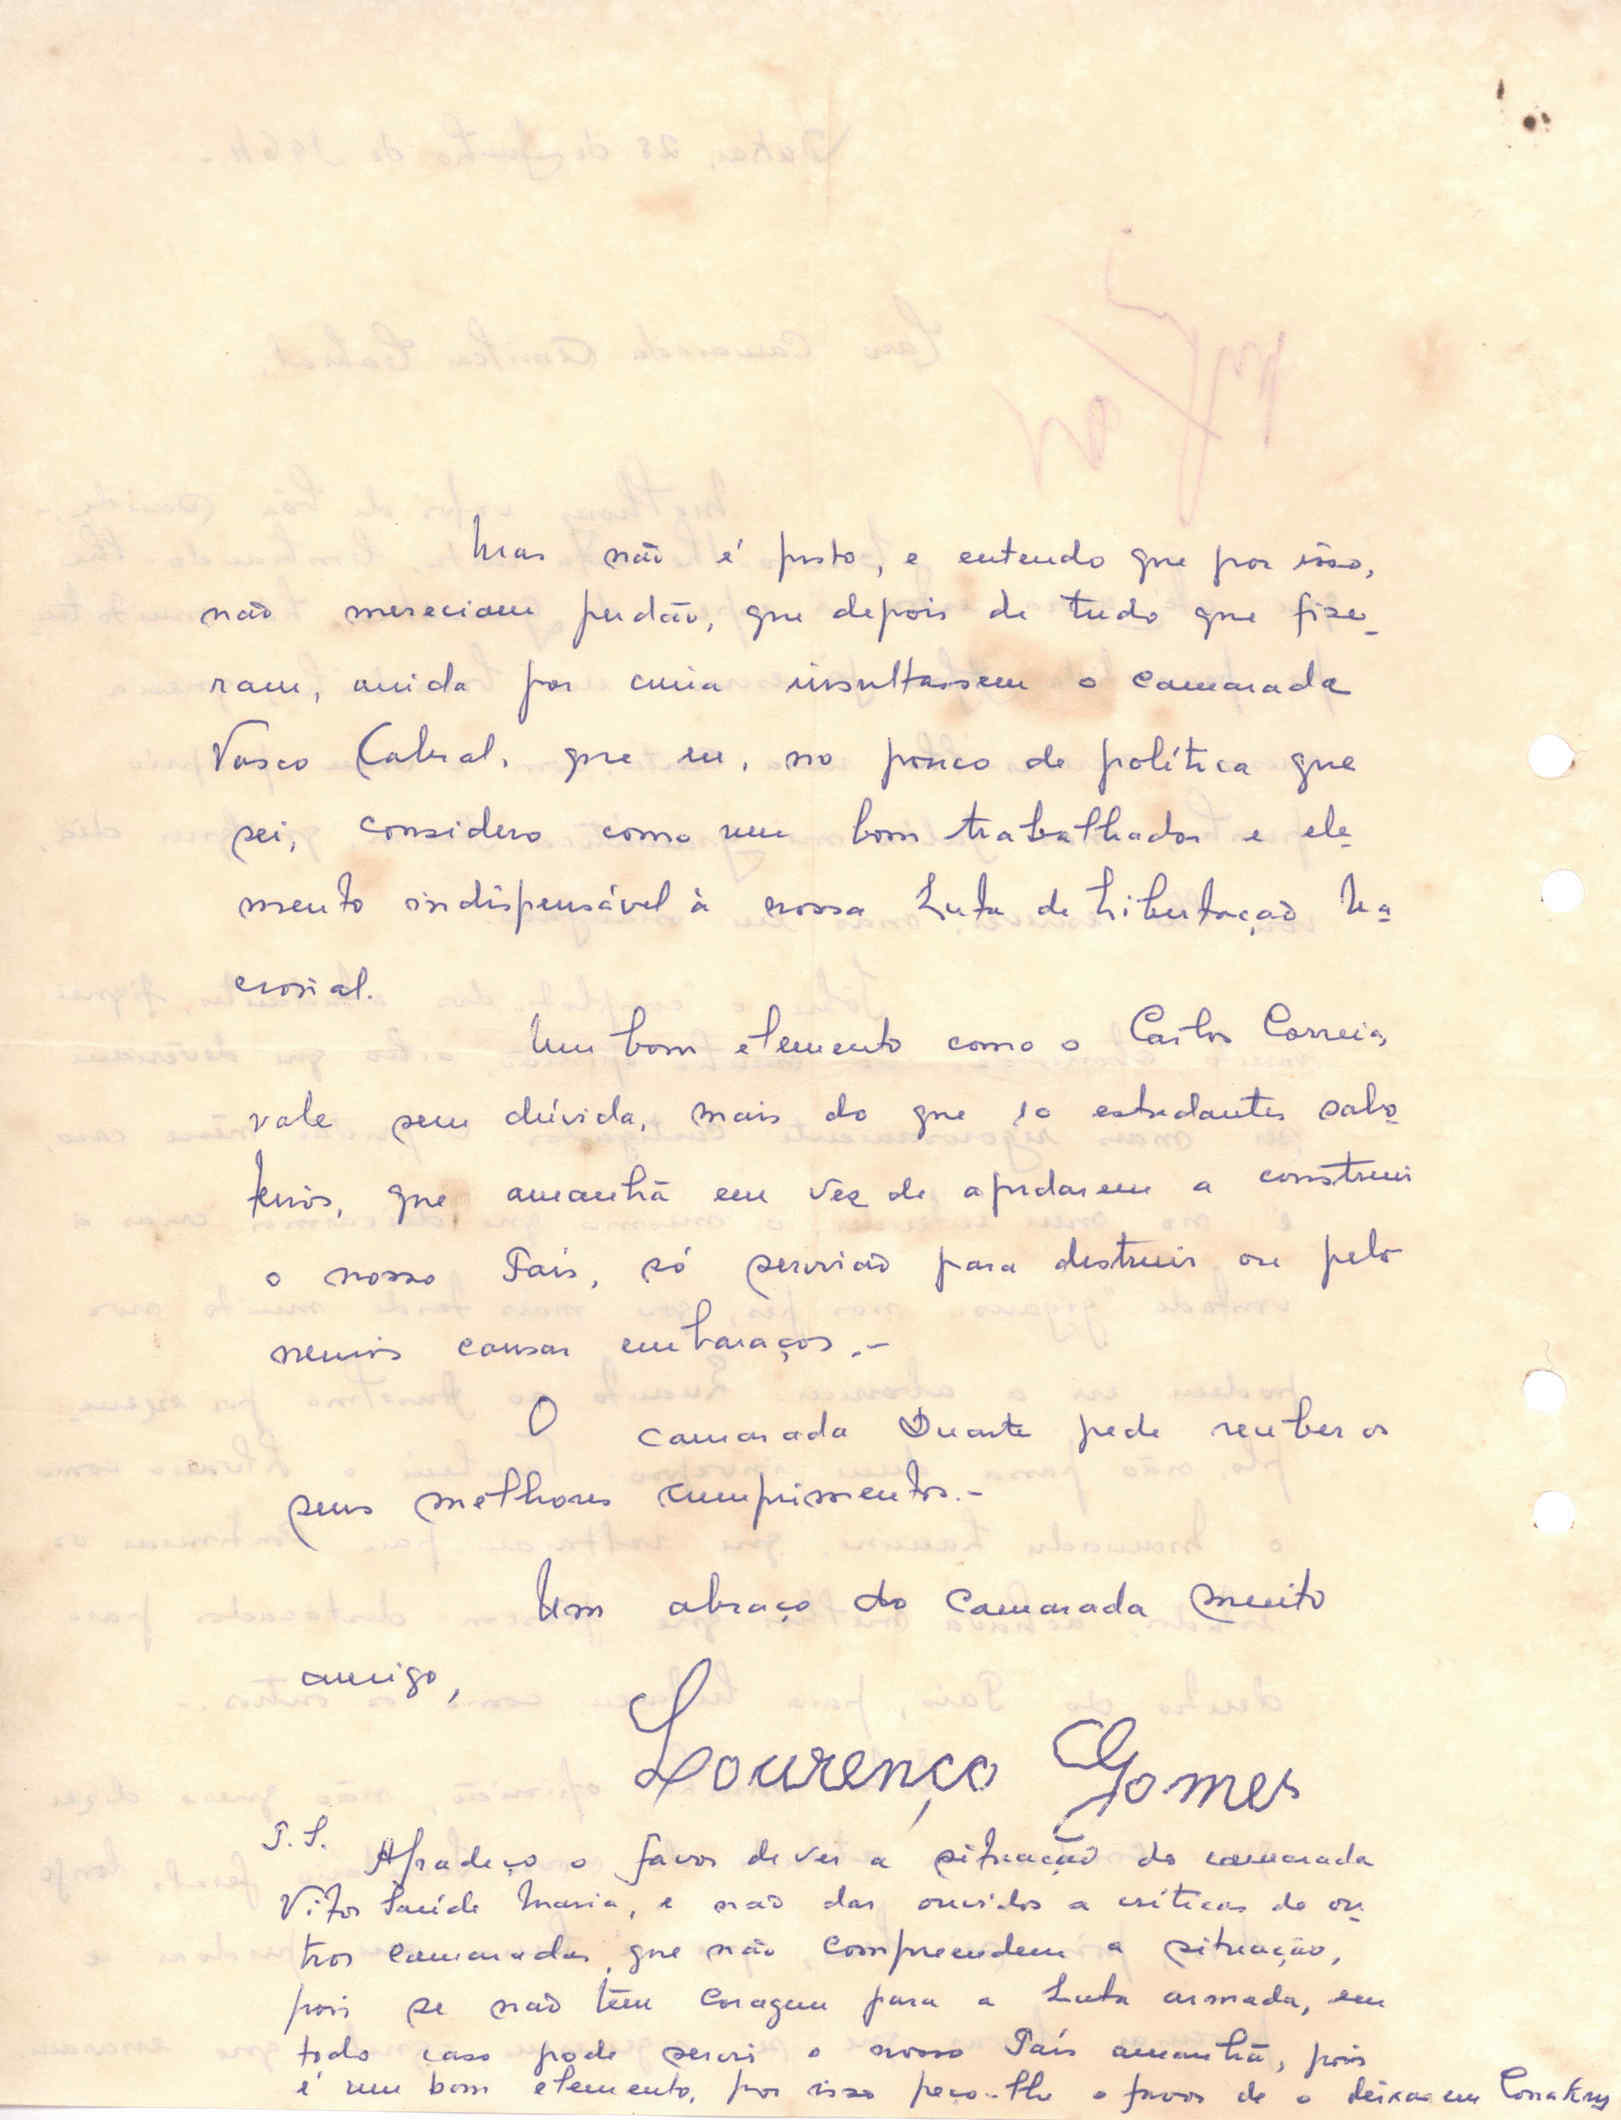 Mas não é justo, e entendo que por isso,
não mereciam perdão, que depois de tudo que fize-
ram, ainda por cima insultassem o camarada
Vasco Cabral, que eu, no pouco de política que
sei, considero como um bom trabalhador e ele-
mento indispensável à nossa Luta de Libertação Na-
cional.
Um bom elemento como o Carlos Correia,
vale sem dúvida, mais do que 10 estudantes sabo-
teurs, que amanhã em vez de ajudarem a construir
o nosso País, só servirão para destruir ou pelo
menos causar embaraços.-
O camarada Duarte pede receber os
seus melhores cumprimentos.-
Um abraço do camarada muito
amigo,
Lourenço Gomes
P.S. Agradeço o favor de ver a situação do camarada
Vitor Saúde Maria, e não dar ouvidos a críticas de ou-
tros camaradas, que não compreendem a situação,
pois se não têm coragem para a Luta armada, em
todo caso pode servir o nosso País amanhã, pois
é um bom elemento, por isso peço-lhe o favor de o deixar em Conakry